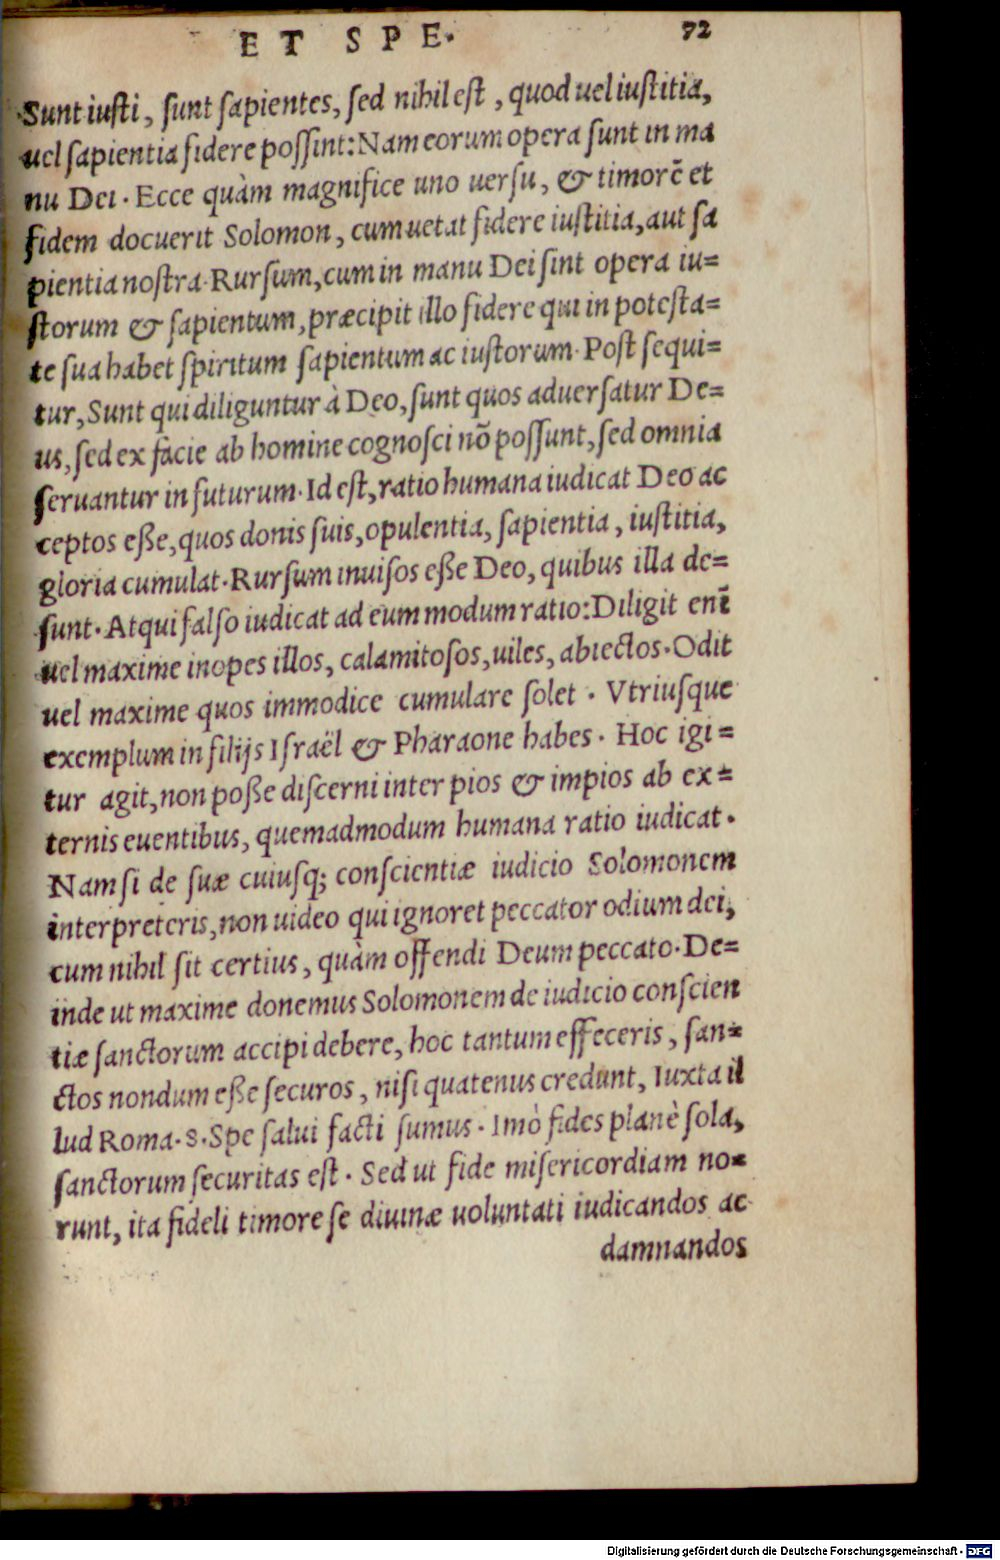 ET SPE. 72
Sunt iusti, sunt sapientes, sed nihil est, quod uel iustitia,
uel sapientia fidere possint: Nam eorum opera sunt in ma
nu Dei. Ecce quàm magnifice uno uersu, & timorē et
fidem docuerit Solomon, cum uetat fidere iustitia, aut sa
pientia nostra. Rursum, cum in manu Dei sint opera iu=
storum & sapientum, præcipit illo fidere qui in potesta=
te sua habet spiritum sapientum ac iustorum. Post sequi=
tur, Sunt qui diliguntur à Deo, sunt quos aduersatur De=
us, sed ex facie ab homine cognosci nō possunt, sed omnia
seruantur in futurum. Id est, ratio humana iudicat Deo ac
ceptos eße, quos donis suis, opulentia, sapientia, iustitia,
gloria cumulat. Rursum inuisos eße Deo, quibus illa de=
sunt. Atqui falso iudicat ad eum modum ratio: Diligit enī
uel maxime inopes illos, calamitosos, uiles, abiectos. Odit
uel maxime quos immodice cumulare solet. Vtriusque
exemplum in filijs Israël & Pharaone habes. Hoc igi=
tur agit, non poße discerni inter pios & impios ab ex=
ternis euentibus, quemadmodum humana ratio iudicat.
Nam si de suæ cuiusq; conscientiæ iudicio Solomonem
interpreteris, non uideo qui ignoret peccator odium dei,
cum nihil sit certius, quàm offendi Deum peccato. De=
inde ut maxime donemus Solomonem de iudicio conscien
tiæ sanctorum accipi debere, hoc tantum effeceris, san=
ctos nondum eße securos, nisi quatenus credunt, Iuxta il
lud Roma. 8. Spe salui facti sumus. Imò fides planè sola,
sanctorum securitas est. Sed ut fide misericordiam no=
runt, ita fideli timore se diuinæ uoluntati iudicandos ac
damnandos
Digitalisierung gefördert durch die Deutsche Forschungsgemeinschaft - DFG